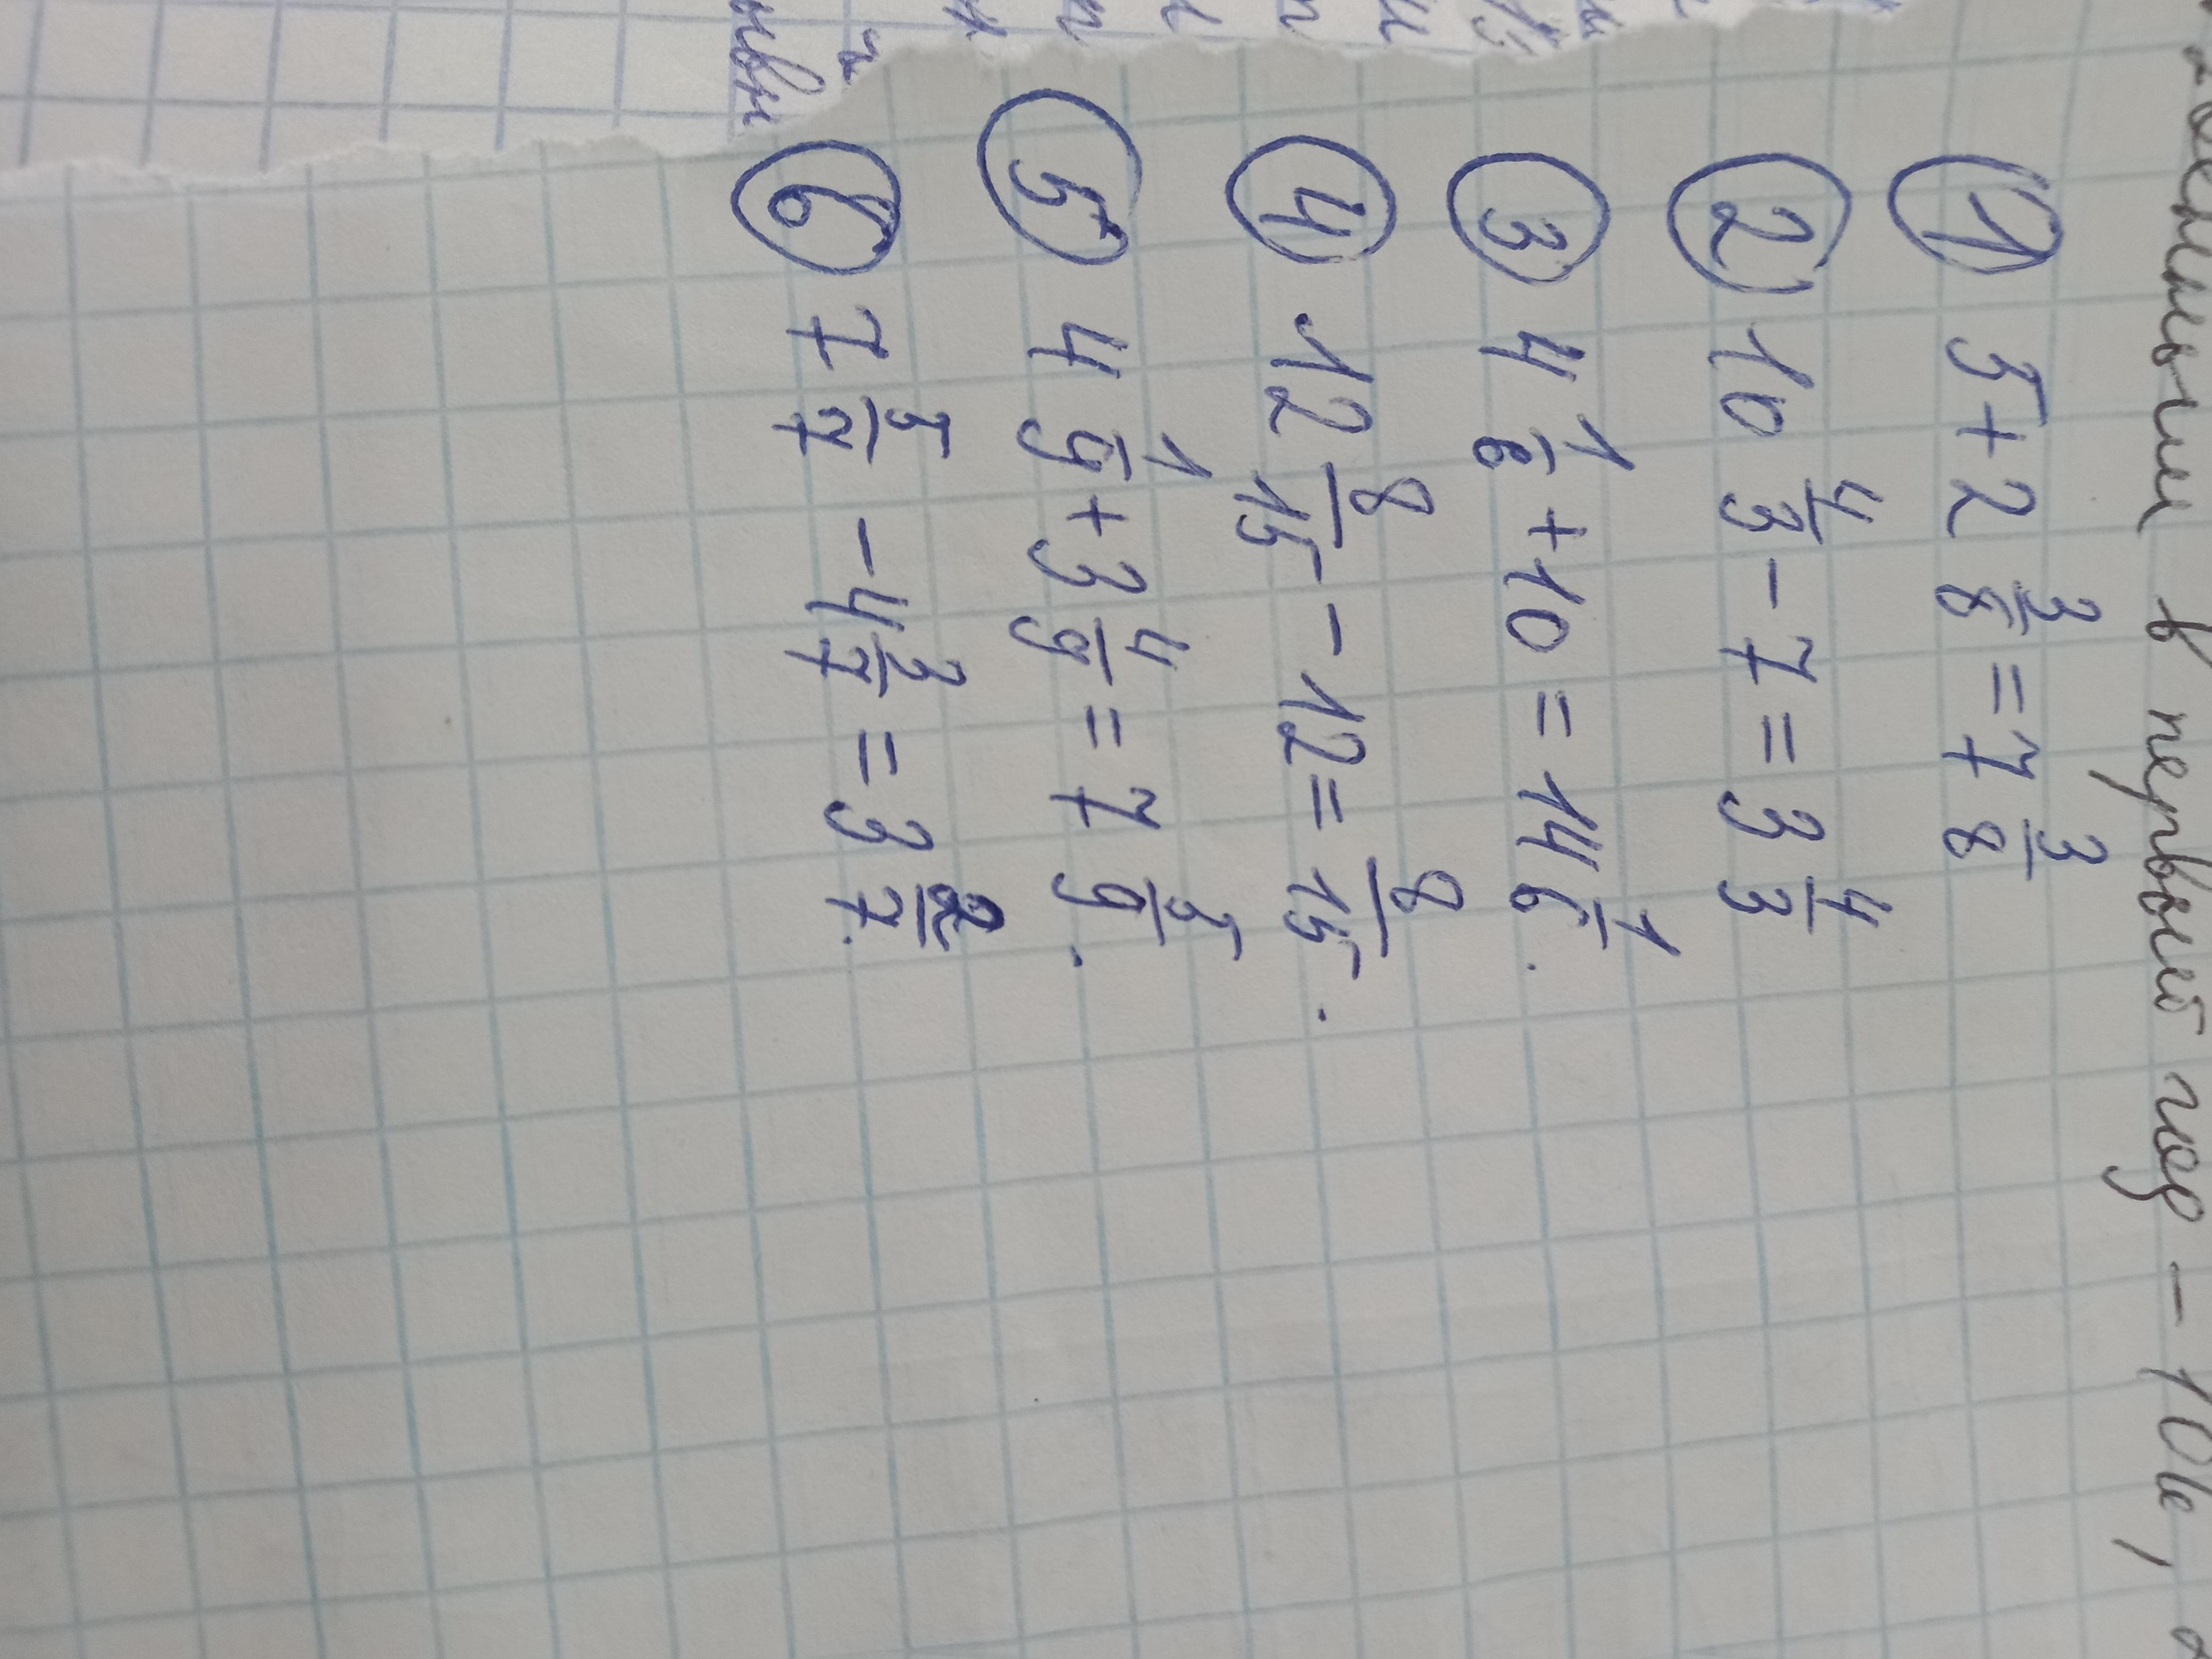 в первый год - 10
① 5 + 2 3/8 = 7 3/8
② 10 4/3 - 7 = 3 4/3
③ 4 1/6 + 10 = 14 1/6.
④ 12 8/15 - 12 = 8/15.
⑤ 4 1/9 + 3 4/9 = 7 5/9.
⑥ 7 5/7 - 4 3/7 = 3 2/7.